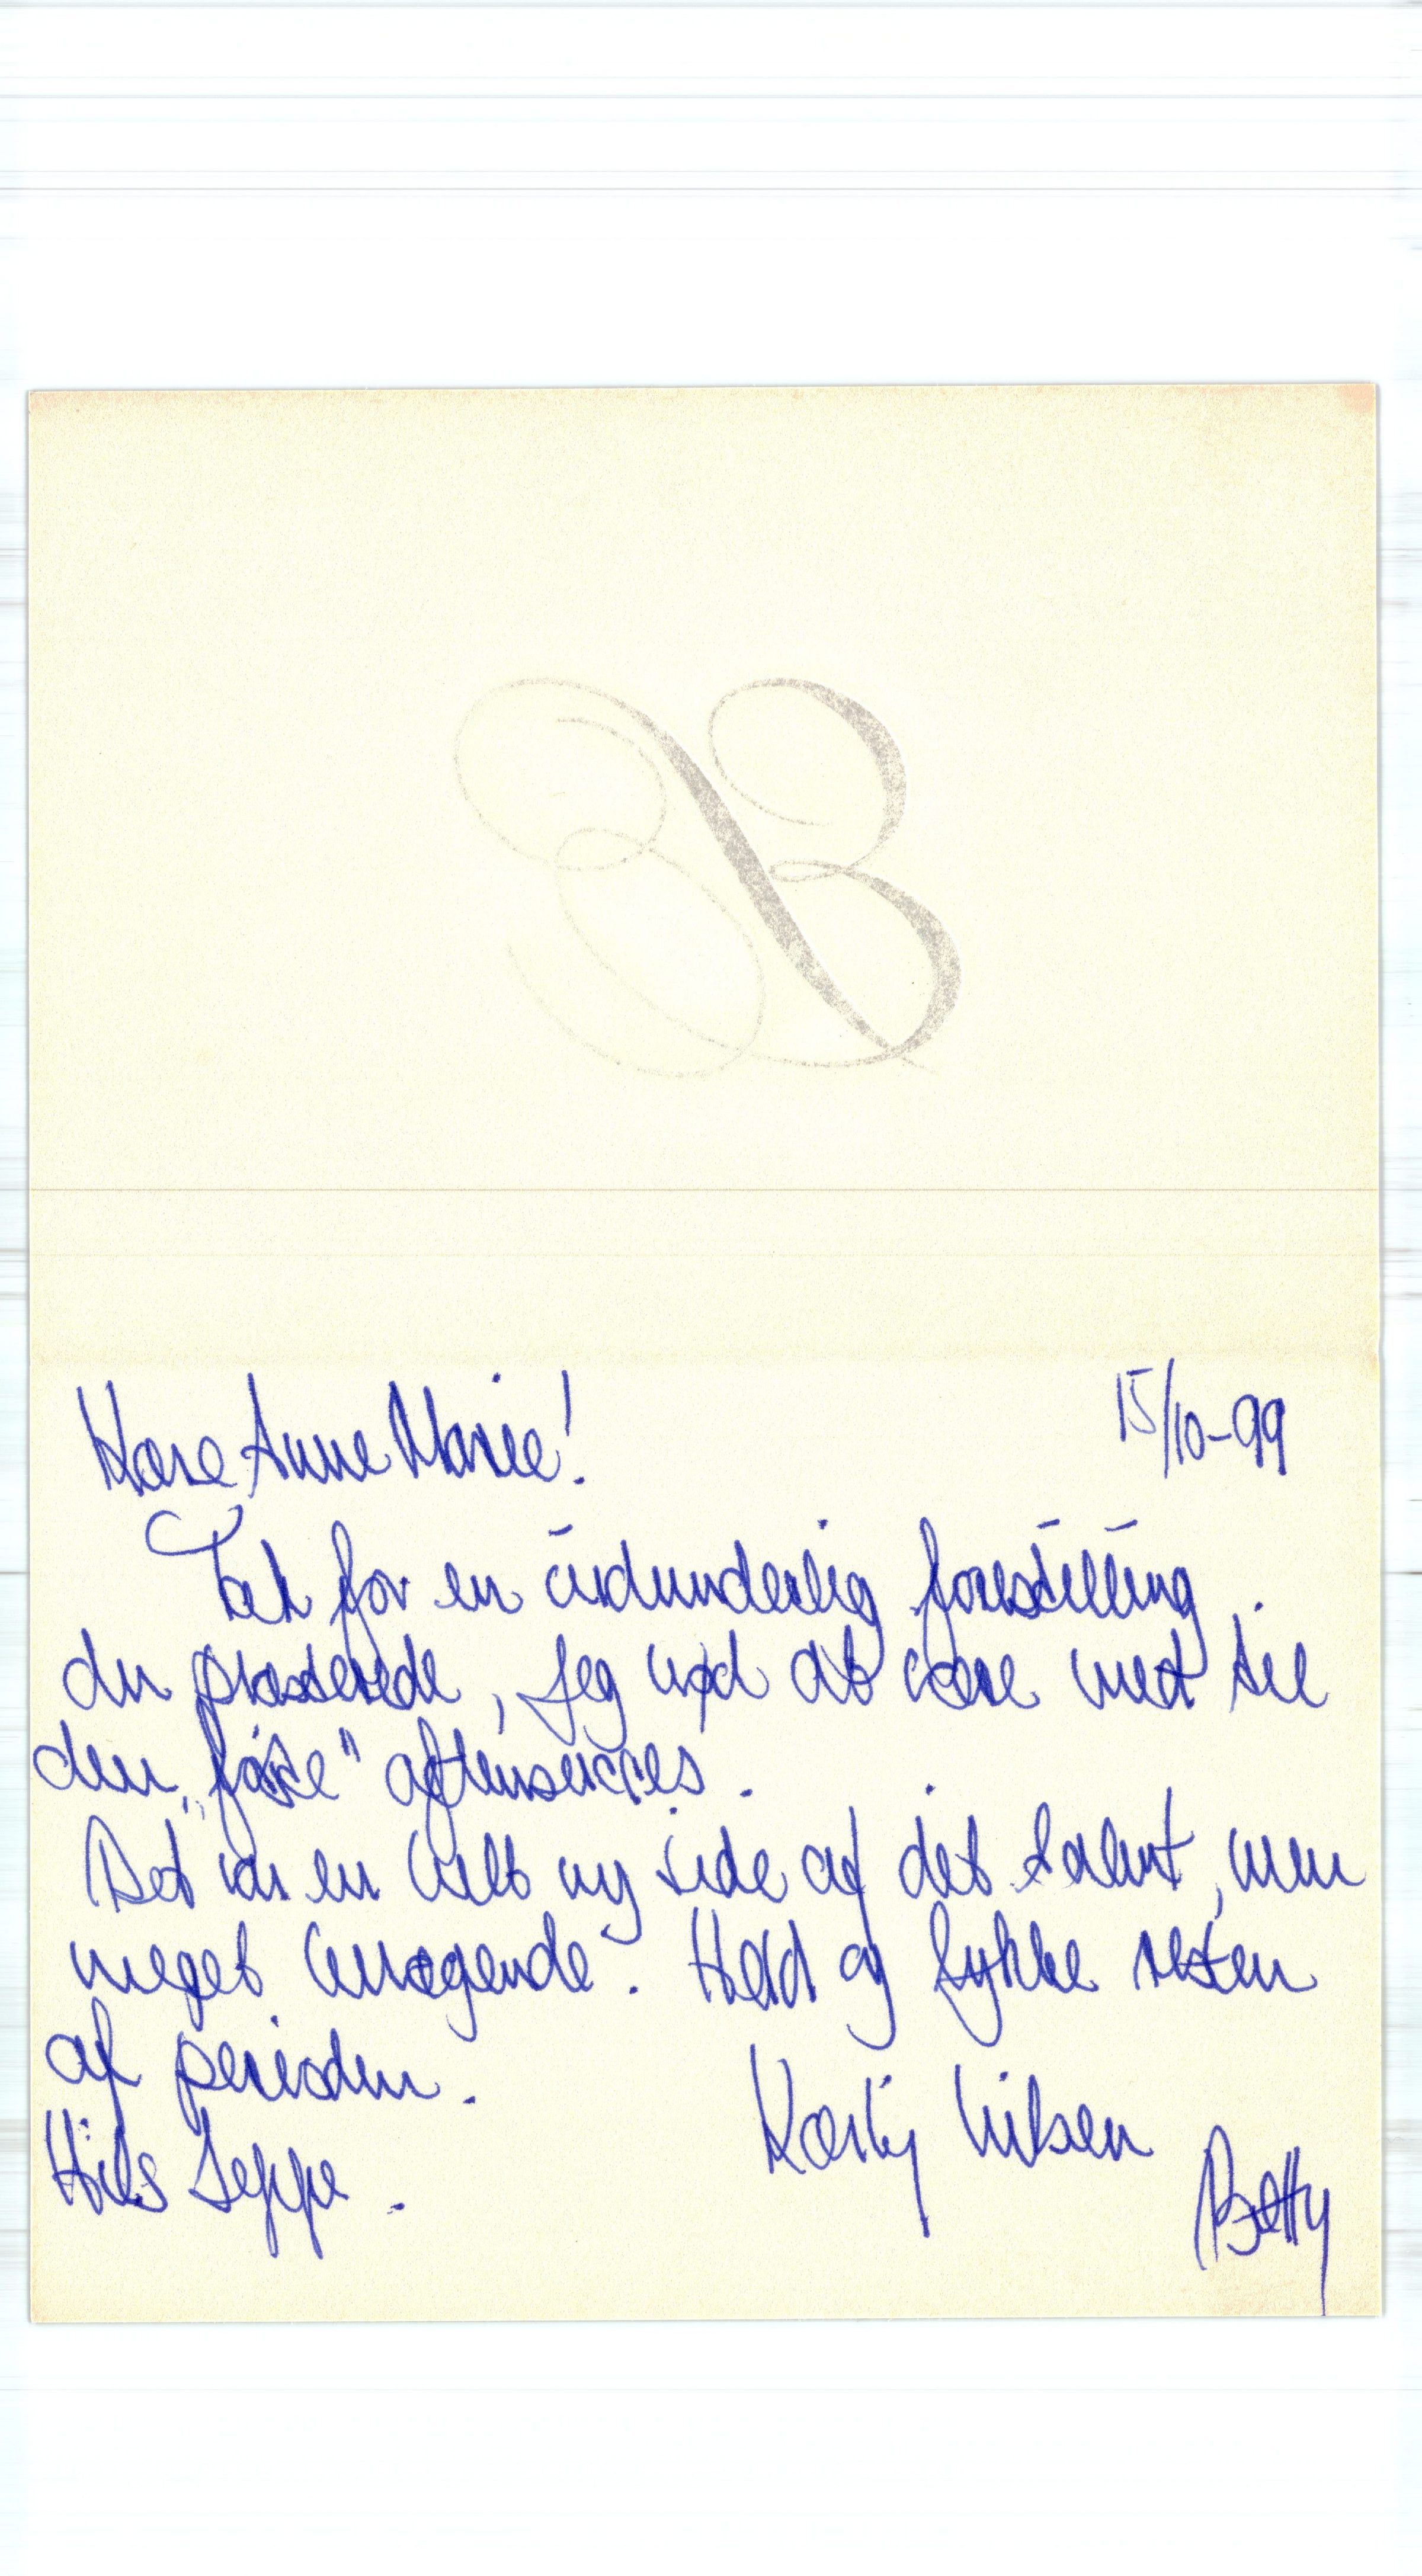 B
Kære Anne Marie! 15/10-99
Tak for en vidunderlig forestilling
du præsterede, jeg nød at være med til
den aftensucces.
Det var en helt ny side af dit talent, men
meget. Held og lykke resten
af perioden.
Hils Jeppe. Kærlig hilsen
Betty